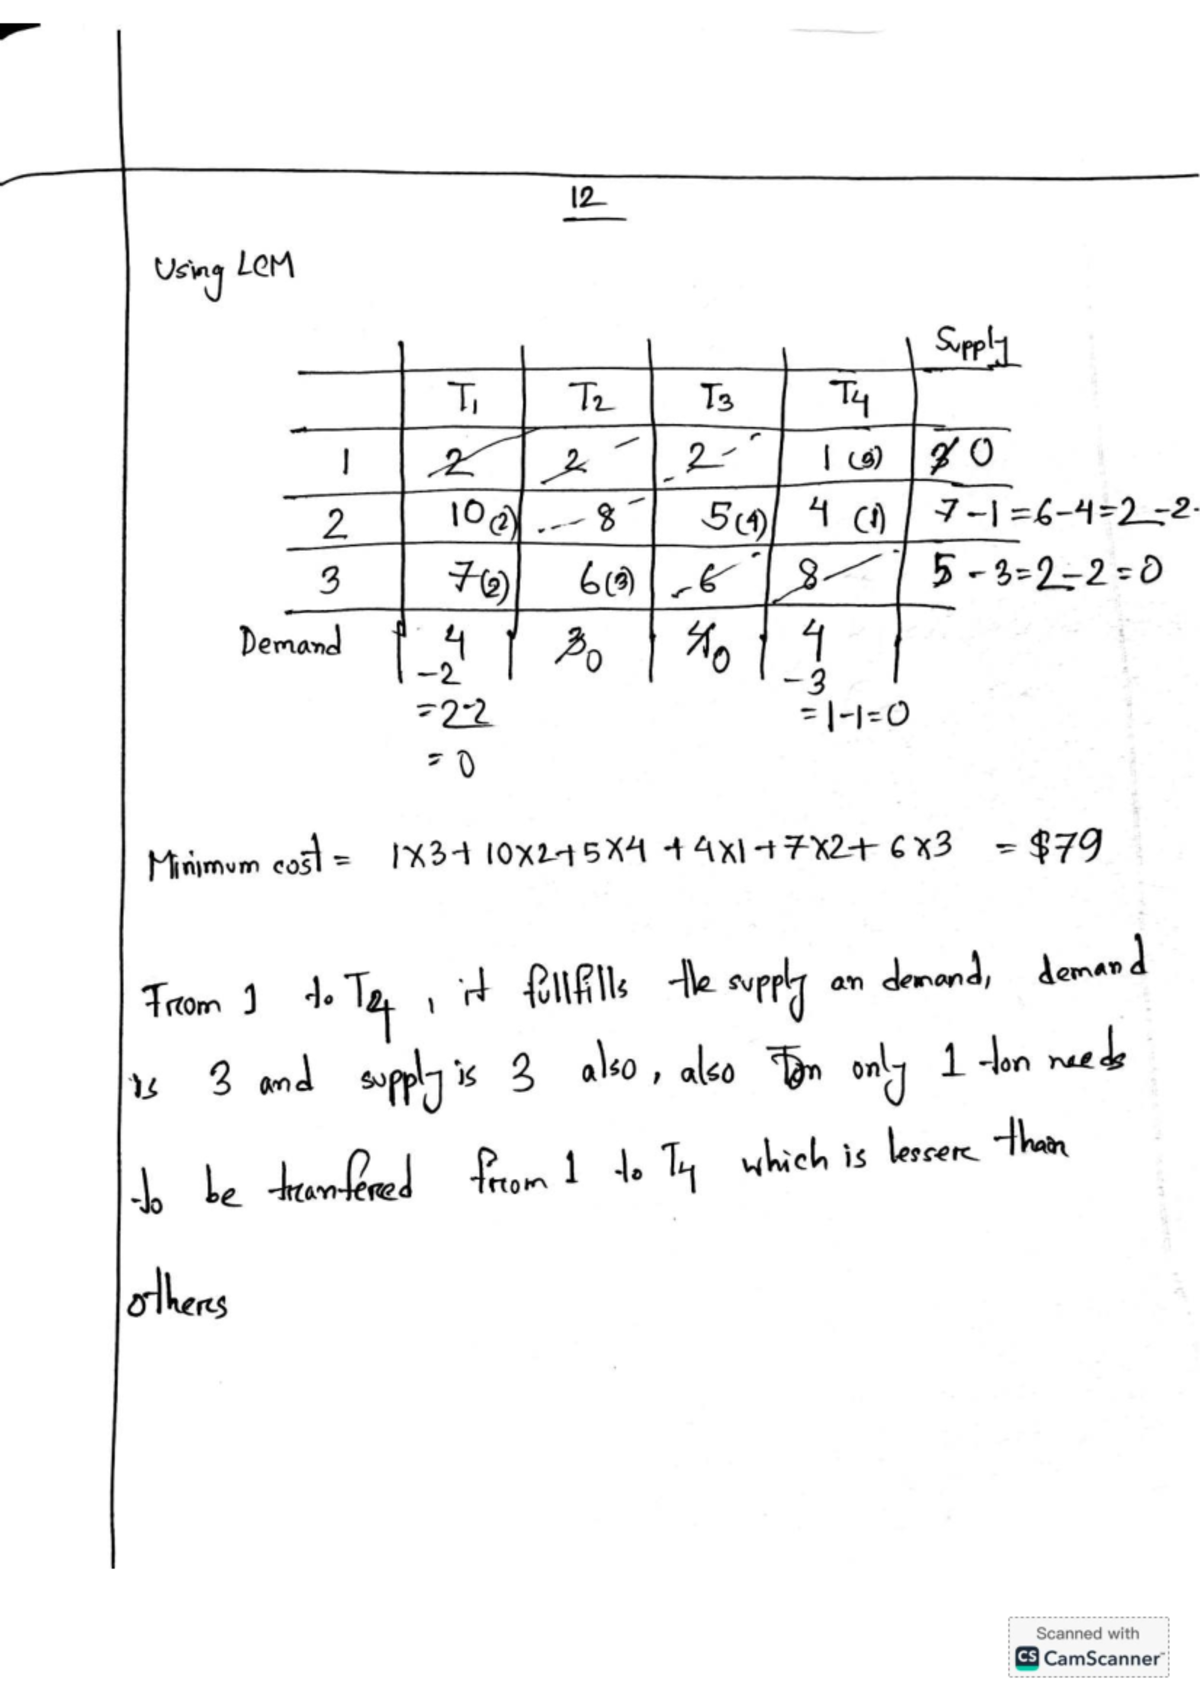 12
Using LCM
Supply
T1 T2 T3 T4
1 2 2 2 1 (3) 3 0
2 10 (2) 8 5 (4) 4 (1) 7-1=6-4=2-2-
3 7 (2) 6 (3) 6 8 5-3=2-2=0
Demand 4 3 0 4 0 4
-2 -3
=2-2 =1-1=0
=0
Minimum cost = 1x3+10x2+5x4+4x1+7x2+6x3 = $79
From 1 to T4, it fullfills the supply an demand, demand
is 3 and supply is 3 also, also only 1 ton needs
to be tranfered from 1 to T4 which is lesser than
others
Scanned with
CS CamScanner